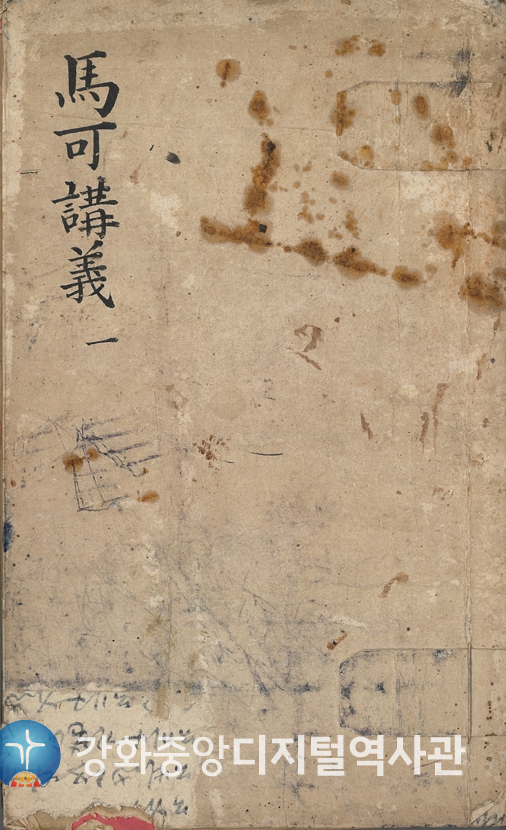 馬可講義
一
강화중앙디지털역사관